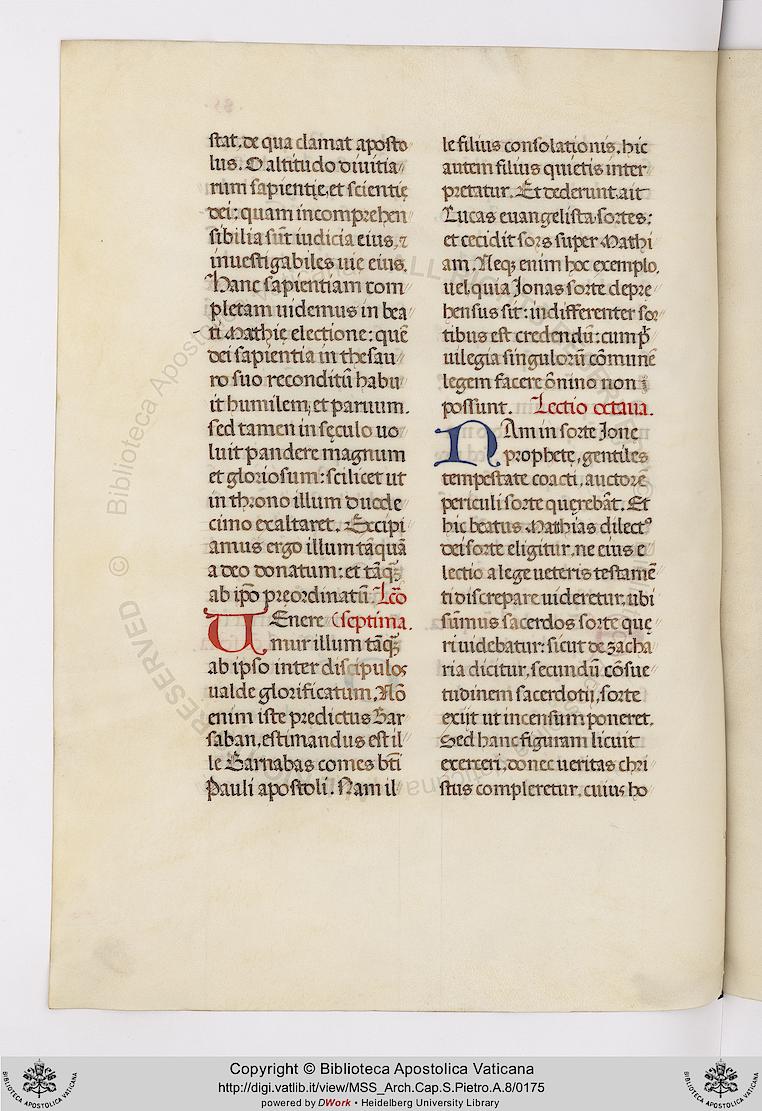 stat, de qua clamat aposto
lus. O altitudo divitia
rum sapientię, et scientię
dei: quam incomprehen
sibilia sūt iudicia eius, ⁊
investigabiles vię eius.
Hanc sapientiam com
pletam videmus in bea
ti Mathię electione: quē
dei sapientia in thesau
ro suo reconditū habu
it humilem, et parvum.
sed tamen in sęculo vo
luit pandere magnum
et gloriosum: scilicet ut
in throno illum duode
cimo exaltaret. Excipi
amus ergo illum tāquā
a deo donatum: et tāqȝ
ab ip̄o preordinatū. Lc̄o
septima.
VEnere
mur illum tāqȝ
ab ipso inter discipulos
valde glorificatum. Nō
enim iste predictus Bar
saban, estimandus est il
le Barnabas comes bt̄i
Pauli apostoli. Nam il
le filius consolationis. hic
autem filius quietis inter
pretatur. Et dederunt, ait
Lucas euangelista, sortes:
et cecidit sors super Mathi
am. Neqȝ enim hoc exemplo,
vel quia Jonas sorte depre
hensus sit: indifferenter sor
tibus est credendū: cum p̄
vilegia singulorū cōmunē
legem facere ōnino non
possunt. Lectio octava.
NAm in sorte Jonę
prophetę, gentiles
tempestate coacti, auctorē
periculi sorte quęrebāt. Et
hic beatus Mathias dilectꝰ
dei sorte eligitur, ne eius e
lectio a lege veteris testamē
ti discrepare videretur, ubi
sūmus sacerdos sorte quę
ri videbatur: sicut de zacha
ria dicitur, secundū cōsue
tudinem sacerdotii, sorte
exiit ut incensum poneret.
Sed hanc figuram licuit
exerceri, donec veritas chri
stus compleretur. cuius ho
Copyright © Biblioteca Apostolica Vaticana
http://digi.vatlib.it/view/MSS_Arch.Cap.S.Pietro.A.8/0175
powered by DWork • Heidelberg University Library